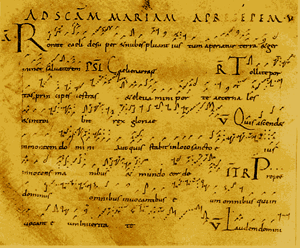 AD SCAM MARIAM
Rorate caeli desuper nubes pluant ius tum aperiatur terra & ger
minet saluatorem PSL Caeli enarrant R Tollite por
tas prin cipes uestras & eleua mini por te aeternales
& introi bit rex gloriae V Quis ascendet
in montem do mini aut quis stabit in loco sancto e ius
innocens ma nibus & mundo cor de ITR Prope est
dominus omnibus inuocantibus e um omnibus qui in
uocant e um in uerita te V Laudem domini